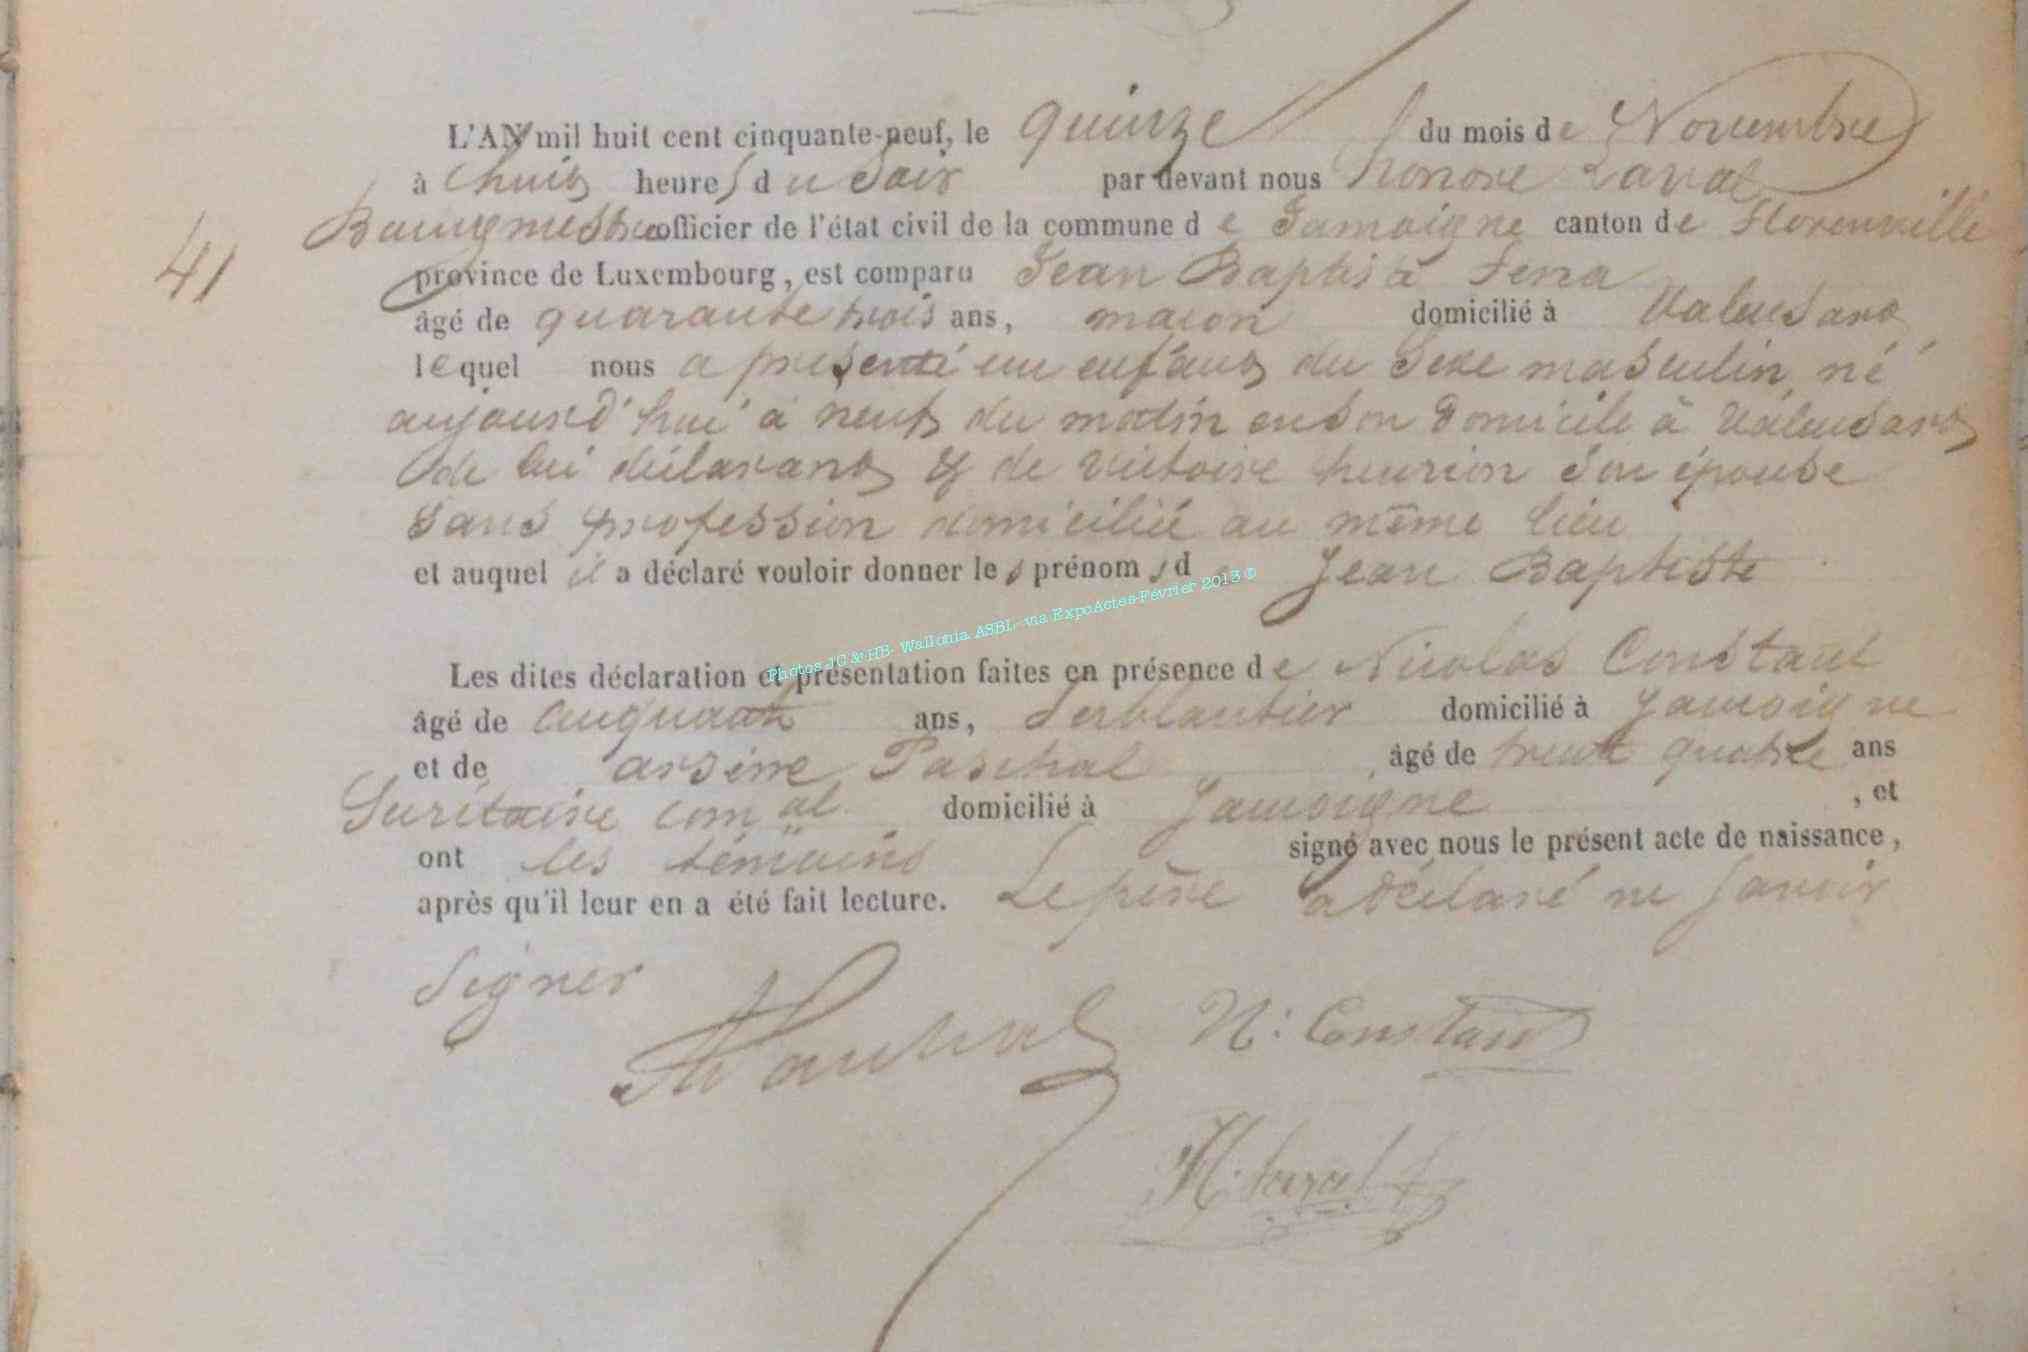 L'AN mil huit cent cinquante-neuf, le quinze du mois de Novembre
à huit heures du Soir par devant nous honoré Laval
Bourgmestre officier de l'état civil de la commune de Jamoigne canton de Florenville
41
province de Luxembourg, est comparu Jean Baptiste
âgé de quarante trois ans, maçon domicilié à Valensart
lequel nous a présenté un enfant du Sexe masculin né
aujourd'hui à neuf du matin en son domicile à Valensart
de lui déclarant & de victoire henrion Son épouse
Sans profession domiciliée au même lieu
et auquel il a déclaré vouloir donner les prénoms de Jean Baptiste
Photos JC & HB- Wallonia ASBL- via ExpoActes-Février 2013 ©
Les dites déclaration et présentation faites en présence de Nicolas Constant
âgé de cinquante ans, ferblantier domicilié à Jamoigne
et de arsène Paschal âgé de trente quatre ans
Secrétaire com.al domicilié à Jamoigne, et
ont les témoins signé avec nous le présent acte de naissance,
après qu'il leur en a été fait lecture. Le père a déclaré ne Savoir
Signer
N: Constant
H. Laval